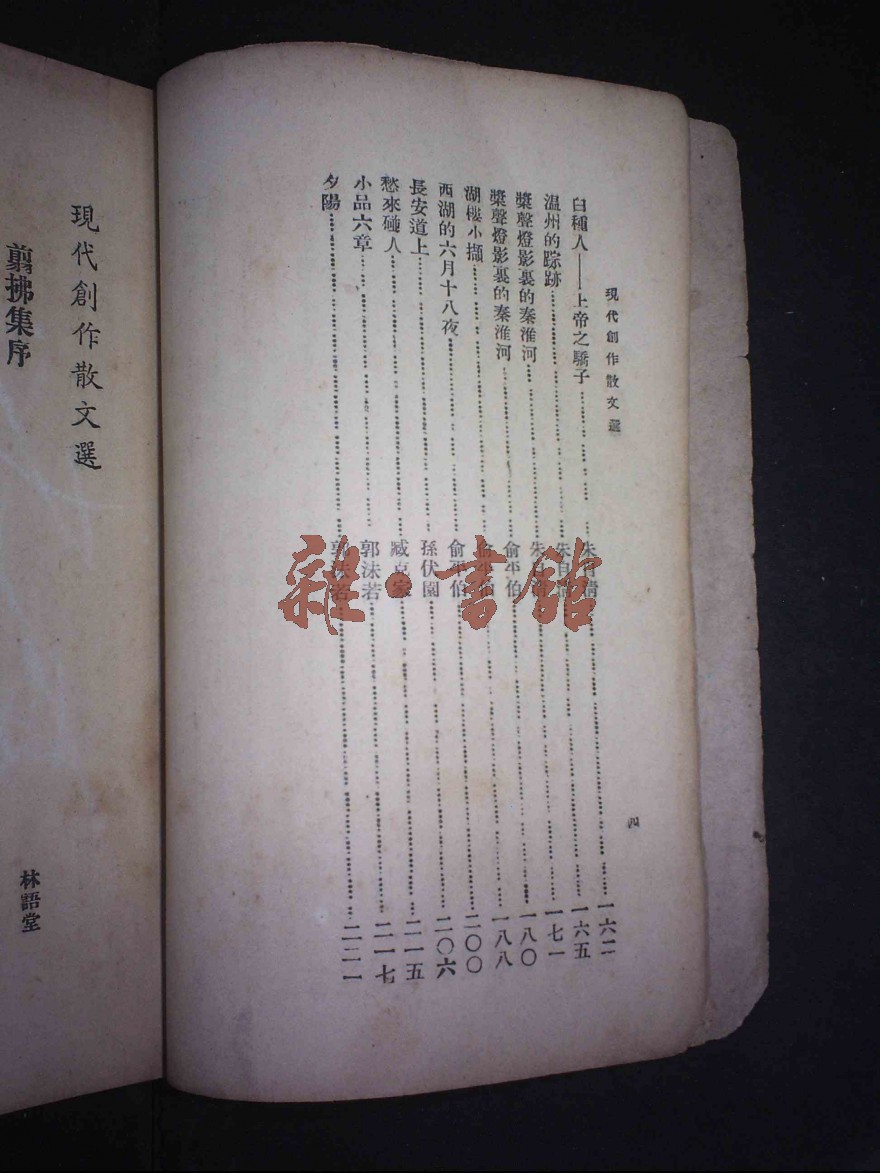 現代創作散文選
白種人——上帝之驕子……朱自清……一六二
温州的踪跡……朱自清……一六五
槳聲燈影裏的秦淮河……朱自清……一七一
槳聲燈影裏的秦淮河……俞平伯……一八〇
湖樓小擷……俞平伯……一八八
西湖的六月十八夜……俞平伯……二〇〇
長安道上……孫伏園……二〇六
愁來碰人……臧克家……二一五
小品六章……郭沫若……二一七
夕陽……郭沫若……二二一
四
現代創作散文選
翦拂集序
林語堂
雜·書館